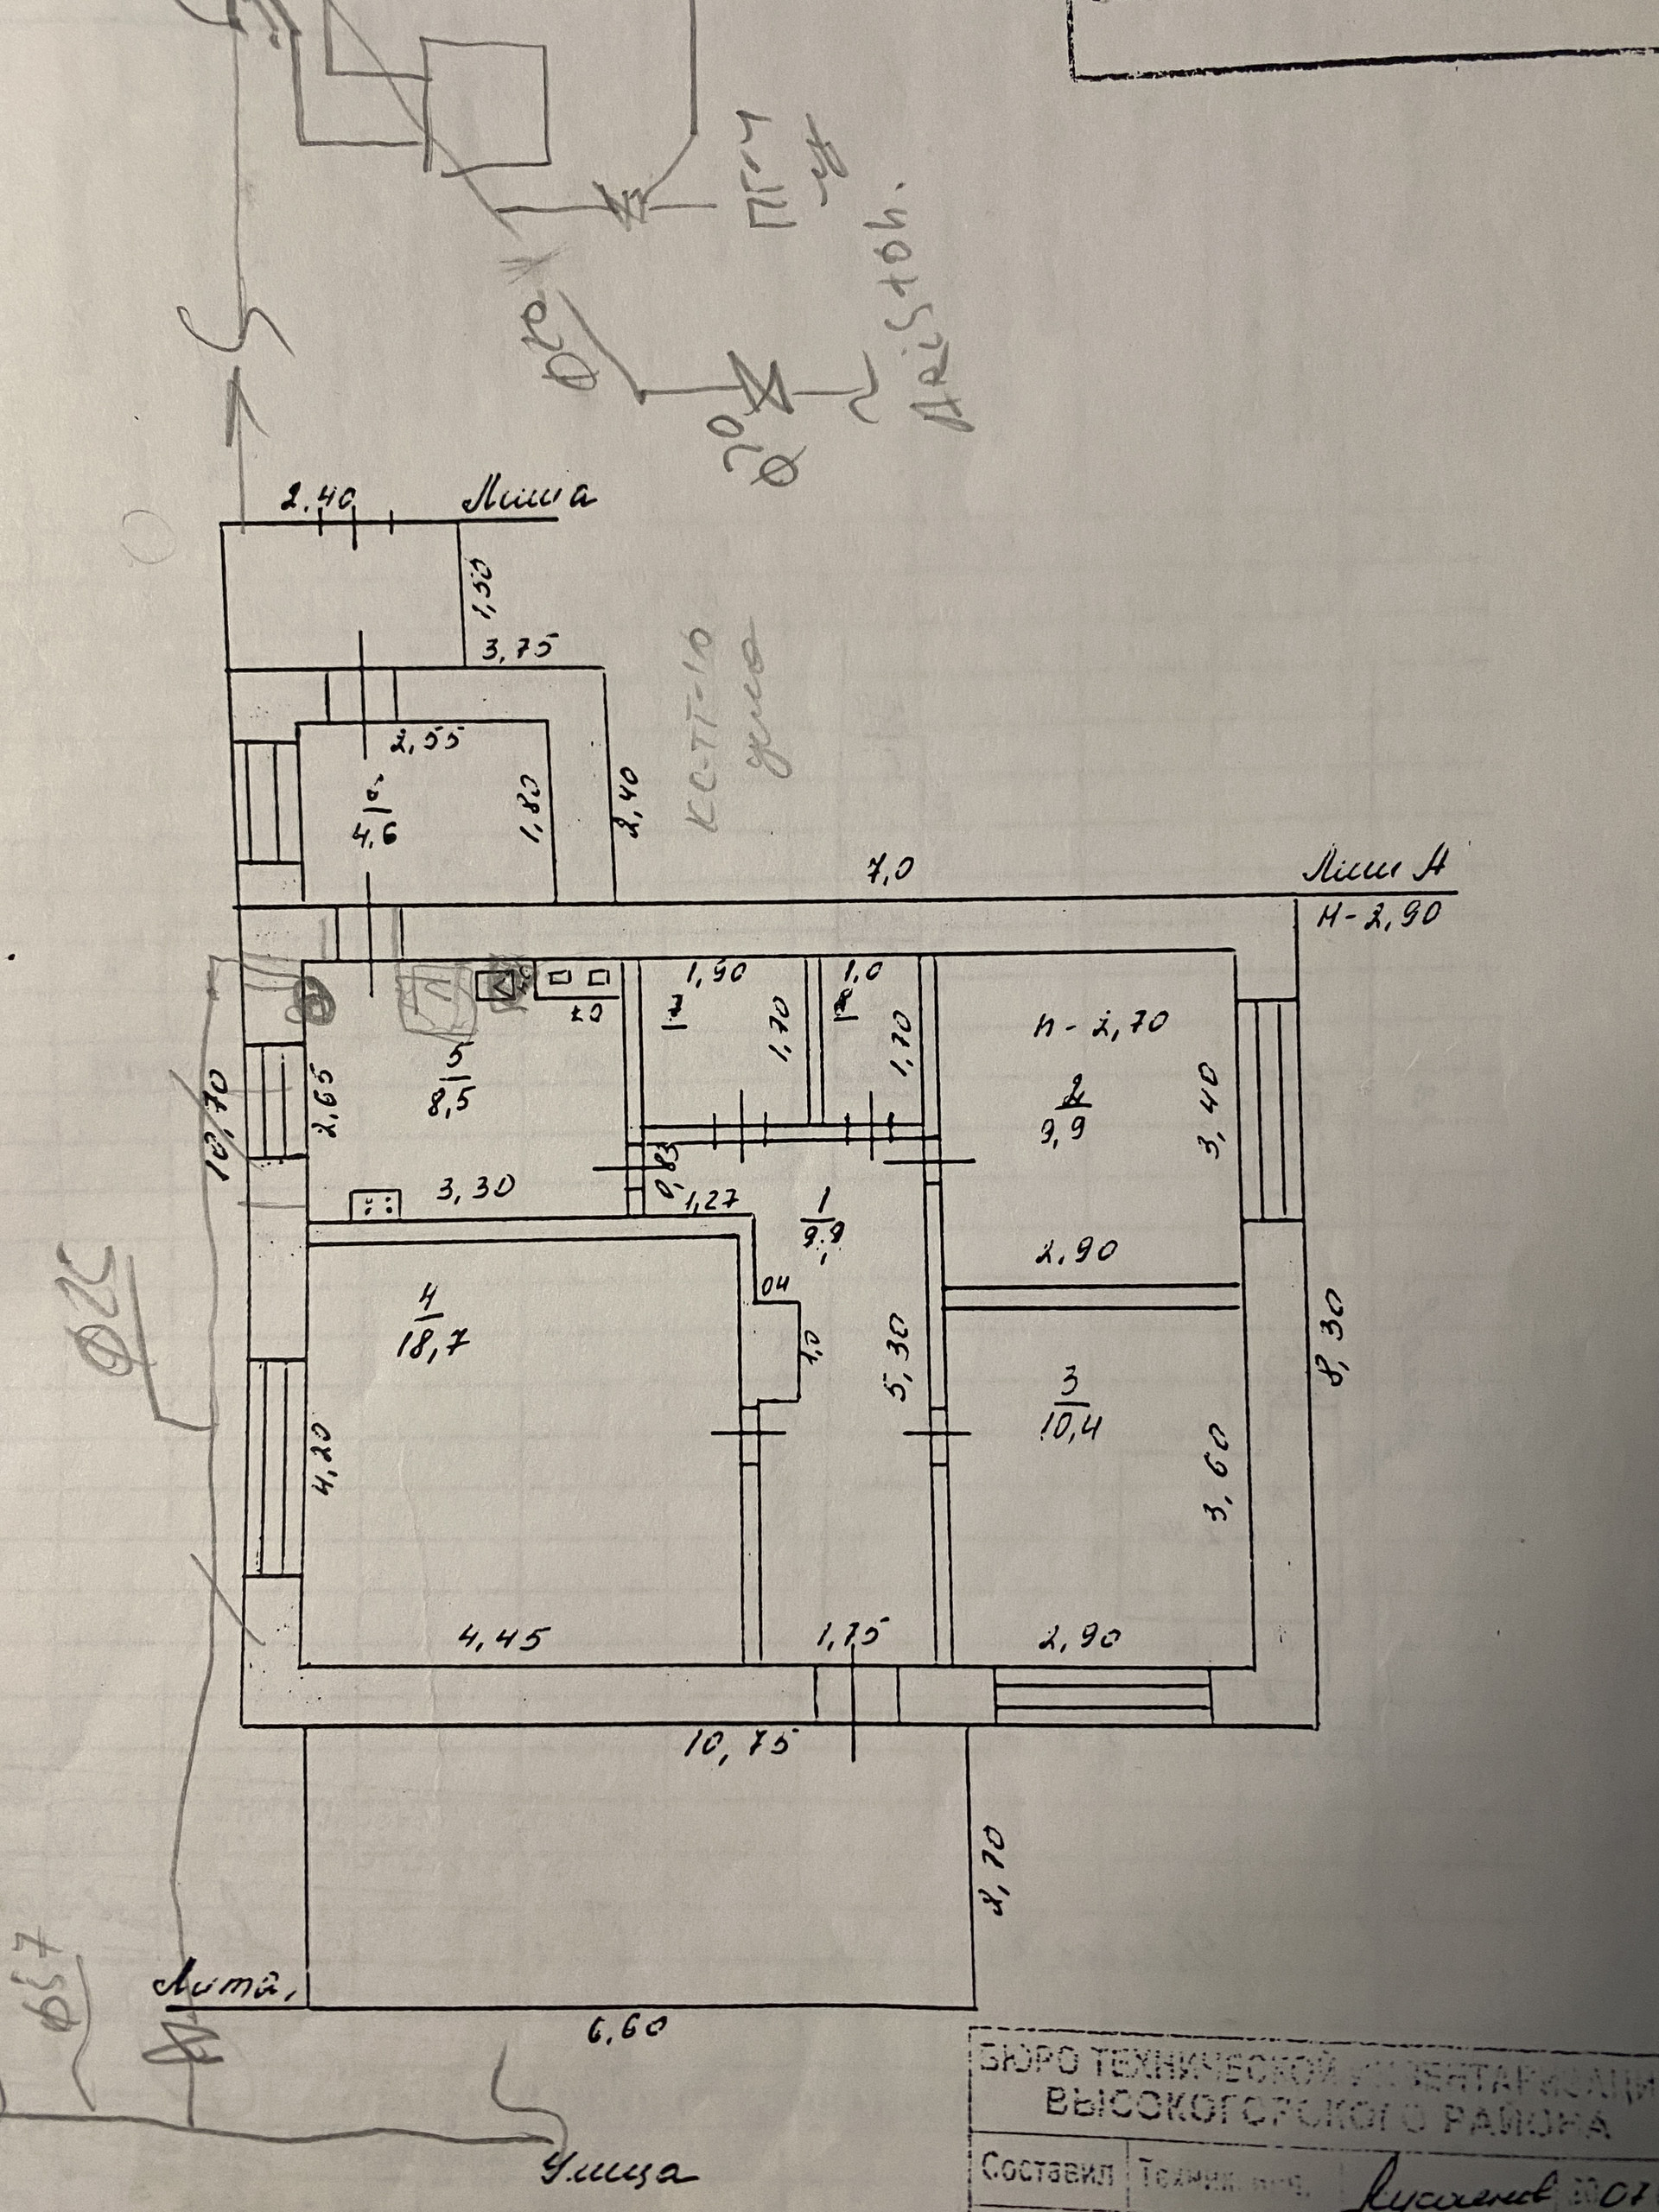 ПГ-4
ARiSton.
Ф20
Ф20
2,40
1,50
3,75
КС-ТГ-10
2,55
1,80
4,6
2,40
7,0
Лит А
Н-2,90
1,90
1,0
7
1,70
1,70
h-2,70
5
8,5
2,65
10,70
2
9,9
3,40
0,83
3,30
1,27
1
9,9
2,90
Ф25
04
4
18,7
1,0
5,30
8,30
3
10,4
4,20
3,60
4,45
1,75
2,90
10,75
2,70
Ф57
6,60
Улица
БЮРО ТЕХНИЧЕСКОЙ ИНВЕНТАРИЗАЦИ
ВЫСОКОГОРСКОГО РАЙОНА
Составил
07